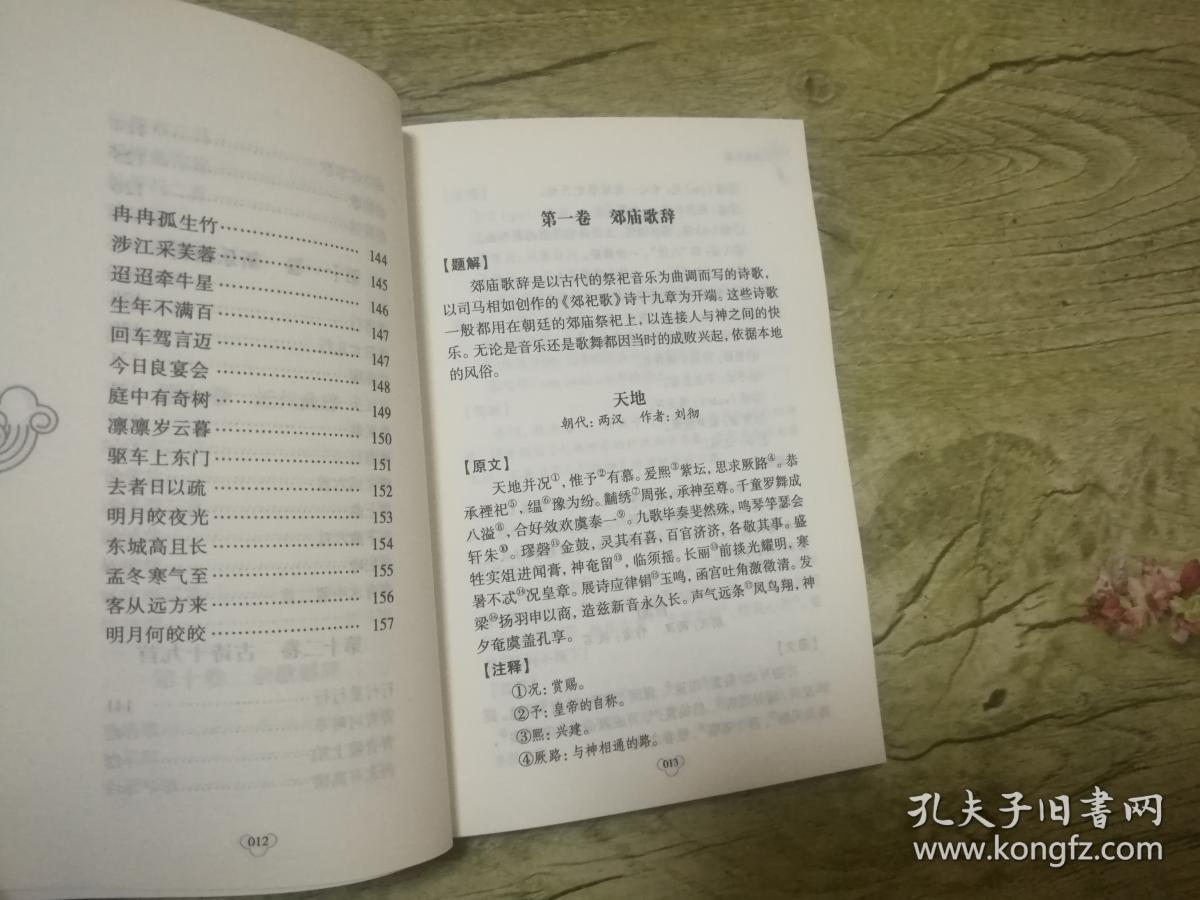 冉冉孤生竹……………………144
涉江采芙蓉……………………145
迢迢牵牛星……………………146
生年不满百……………………147
回车驾言迈……………………147
今日良宴会……………………148
庭中有奇树……………………149
凛凛岁云暮……………………150
驱车上东门……………………151
去者日以疏……………………152
明月皎夜光……………………153
东城高且长……………………154
孟冬寒气至……………………155
客从远方来……………………156
明月何皎皎……………………157
012
第一卷 郊庙歌辞
【题解】
郊庙歌辞是以古代的祭祀音乐为曲调而写的诗歌,
以司马相如创作的《郊祀歌》诗十九章为开端。这些诗歌
一般都用在朝廷的郊庙祭祀上,以连接人与神之间的快
乐。无论是音乐还是歌舞都因当时的成败兴起,依据本地
的风俗。
天地
朝代:两汉 作者:刘彻
【原文】
天地并况①,惟予②有慕。爰熙③紫坛,思求厥路④。恭
承禋祀⑤,缊⑥豫为纷。黼绣⑦周张,承神至尊。千童罗舞成
八溢⑧,合好效欢虞泰一⑨。九歌毕奏斐然殊,鸣琴竽瑟会
轩朱⑩。璆磬⑪金鼓,灵其有喜,百官济济,各敬其事。盛
牲实俎进闻膏,神奄留⑫,临须摇。长丽⑬前掞光耀明,寒
暑不忒⑭况皇章。展诗应律鋗⑮玉鸣,函宫吐角激微清。发
梁⑯扬羽申以商,造兹新音永久长。声气远条⑰凤鸟翔,神
夕奄虞盖孔享。
【注释】
①况:赏赐。
②予:皇帝的自称。
③熙:兴建。
④厥路:与神相通的路。
013
孔夫子旧书网
www.kongfz.com